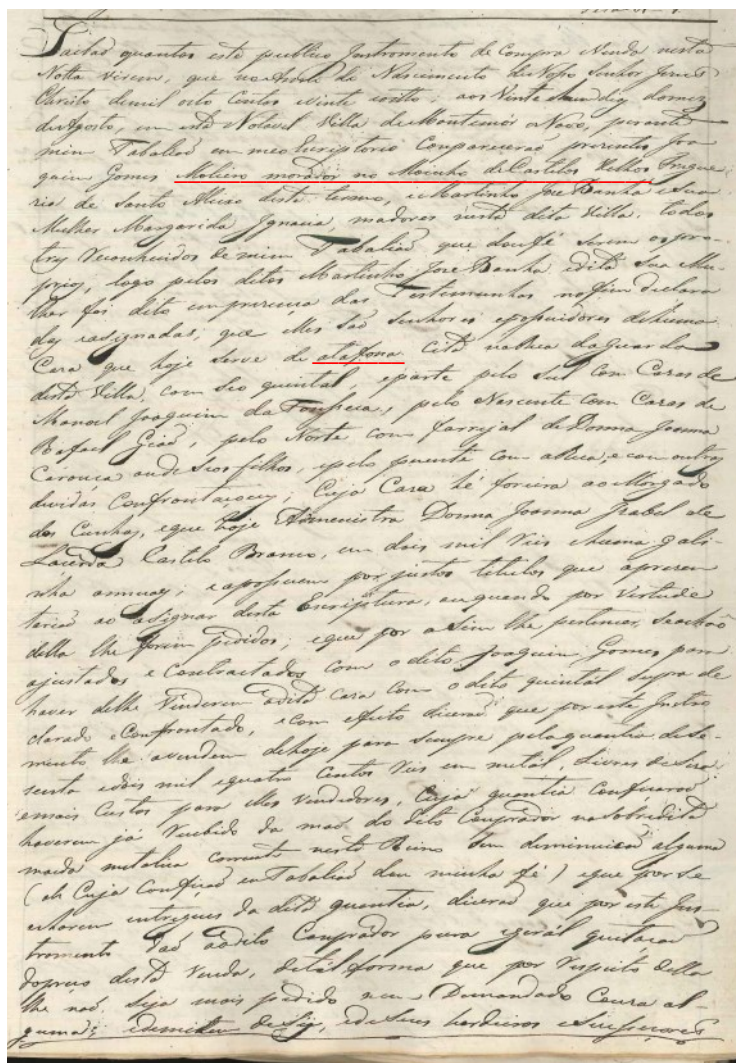 Saibão quantos este publico Instromento de Compra e Venda nesta
Notta virem, que no Anno do Nascimento de Nosso Senhor Jesus
Christo de mil oito Centos e vinte e oito; aos Vinte e hum dez do mez
de Agosto, em esta Notavel Villa de Montemór o Novo, perante
mim Tabalião em meo Escriptorio Comparecerão prezentes Joa
quim Gomes Moleiro morador no Moinho do Castelos Velhos Fregue
zia de Santo Aleixo deste termo, e Martinho José Banha e Sua
Mulher Margarida Ignacia, moradores nesta dita Villa, todos
Reconhecidos de mim Tabalião que dou fé serem os pro-
prios, logo pelos ditos Martinho José Banha, e dita Sua Mu-
lher foi dito em prezença das Testemunhas no fim declara
das e asignadas, que elles são Senhores e posuidores de huma
Caza que hoje serve de atafona cita na Rua da Guarda
desta Villa, com Seo quintal, e parte pelo Sul com Cazas de
Manoel Joaquim da Fonseca, pelo Nascente com Cazas de
Rafael Gião, pelo Norte com farrejal de Donna Joanna
e Seos filhos, e pelo poente com a Rua, e com outras
devidas Confrontaçoens; Cuja Caza hé foreira ao Morgado
dos Cunhas, e que hoje Administra Donna Joanna Izabel de
Lacerda Castelo Branco, em dois mil Reis e huma gali-
nha annuaes; e aposuem por justos titulos que aprezen
tarão ao asignar desta Escriptura, ou quando por Virtude
della lhe forem pedidos; e que por asim lhe pertencer, se achão
ajustados e Contractados com o dito Joaquim Gomes para
haver delhe Venderem a dita caza Com o dito quintal supra de
clarado e Confrontado, e com efeito dicerão que por este Instro
mento lhe a vendem de hoje para sempre pela quantia de Se-
senta e dois mil e quatro Centos Reis em metal, Livres de Siza
e mais Custos para elles Vendedores, Cuja quantia Confeçarão
haverem já Recebido da mão do dito Comprador na sobredita
moeda metalica corrente neste Reino Sem diminuição alguma
(de Cuja Confição eu Tabalião dou minha fé) e que por se
acharem entregues da dita quantia, dicerão que por este Ins-
tromento dão ao dito Comprador pura e geral quitação
do preço desta Venda, de tal forma que por Respeito della
lhe não Seja mais pedido nem Demandado Couza al-
guma; e demitem de Sy, e de Seus herdeiros e Sucesores